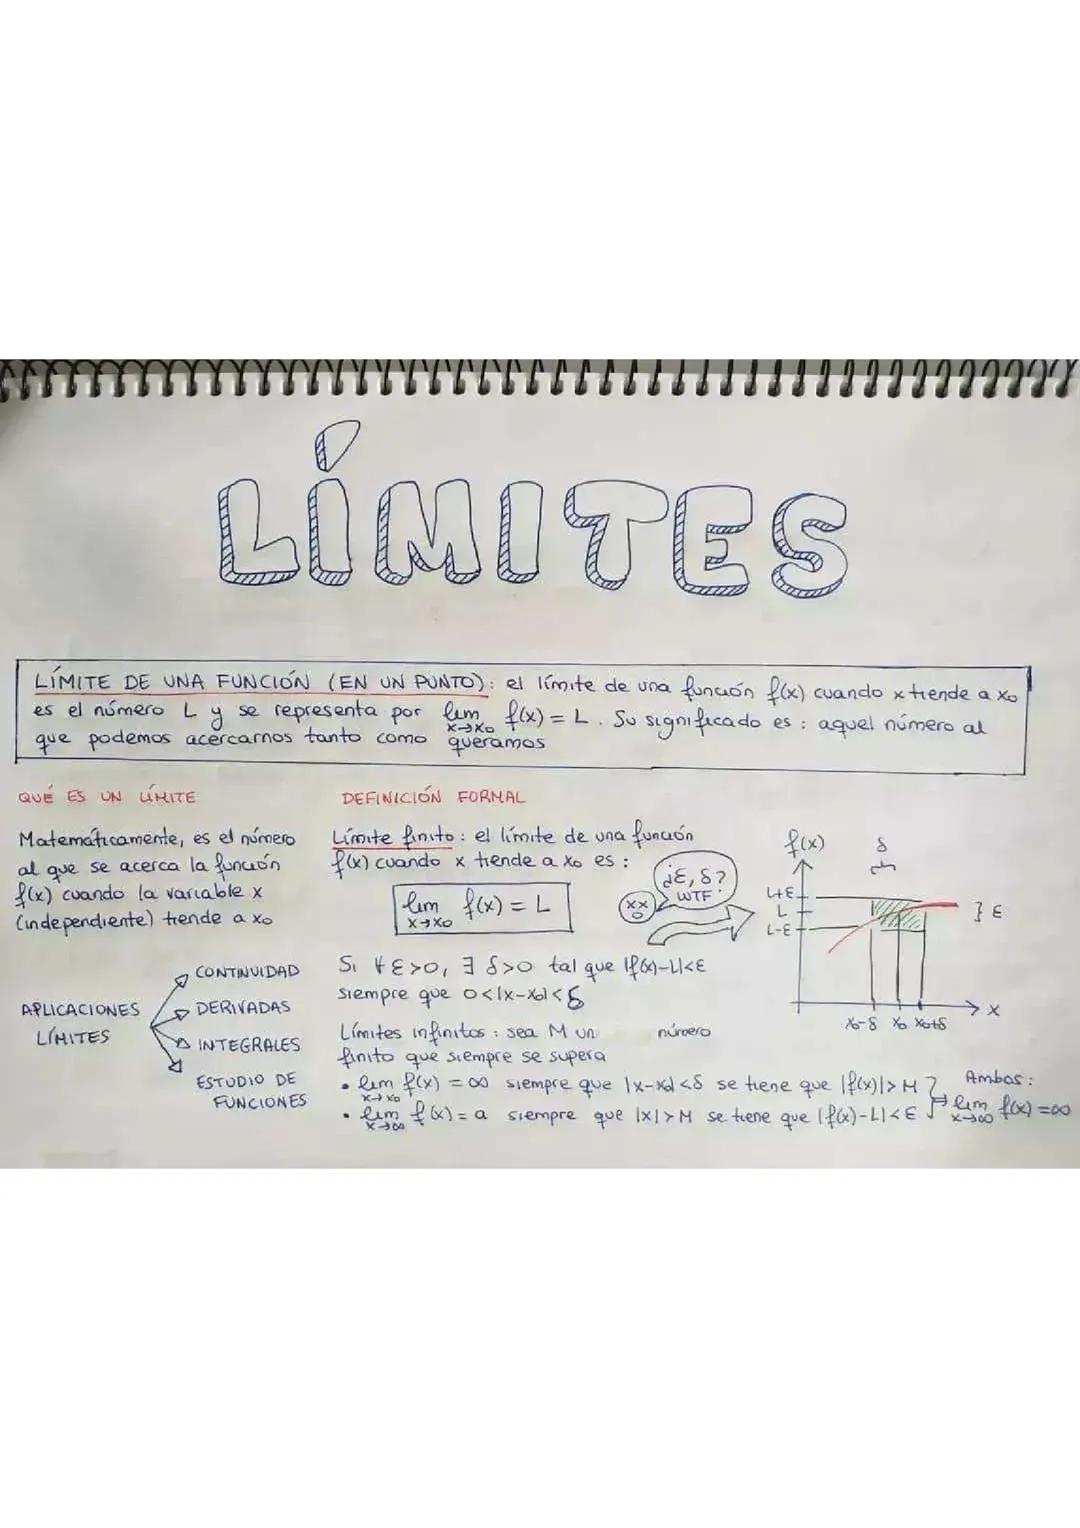 LÍMITES
LÍMITE DE UNA FUNCIÓN (EN UN PUNTO): el límite de una función f(x) cuando x tiende a x₀
es el número L y se representa por lim x→x₀ f(x) = L. Su significado es: aquel número al
que podemos acercarnos tanto como queramos
QUÉ ES UN LÍMITE
Matemáticamente, es el número
al que se acerca la función
f(x) cuando la variable x
(independiente) tiende a x₀
APLICACIONES
LÍMITES
CONTINUIDAD
DERIVADAS
INTEGRALES
ESTUDIO DE
FUNCIONES
DEFINICIÓN FORMAL
Límite finito: el límite de una función
f(x) cuando x tiende a x₀ es:
lim x→x₀ f(x) = L
¿ε, δ?
WTF
Si ∀ε>0, ∃ δ>0 tal que |f(x)-L|<ε
siempre que 0<|x-x₀|<δ
Límites infinitos: sea M un número
finito que siempre se supera
• lim x→x₀ f(x) = ∞ siempre que |x-x₀|<δ se tiene que |f(x)|>M
• lim x→∞ f(x) = a siempre que |x|>M se tiene que |f(x)-L|<ε
Ambos:
⇒ lim x→∞ f(x) = ∞
f(x)
δ
L+ε
L
L-ε
ε
x₀-δ x₀ x₀+δ
x